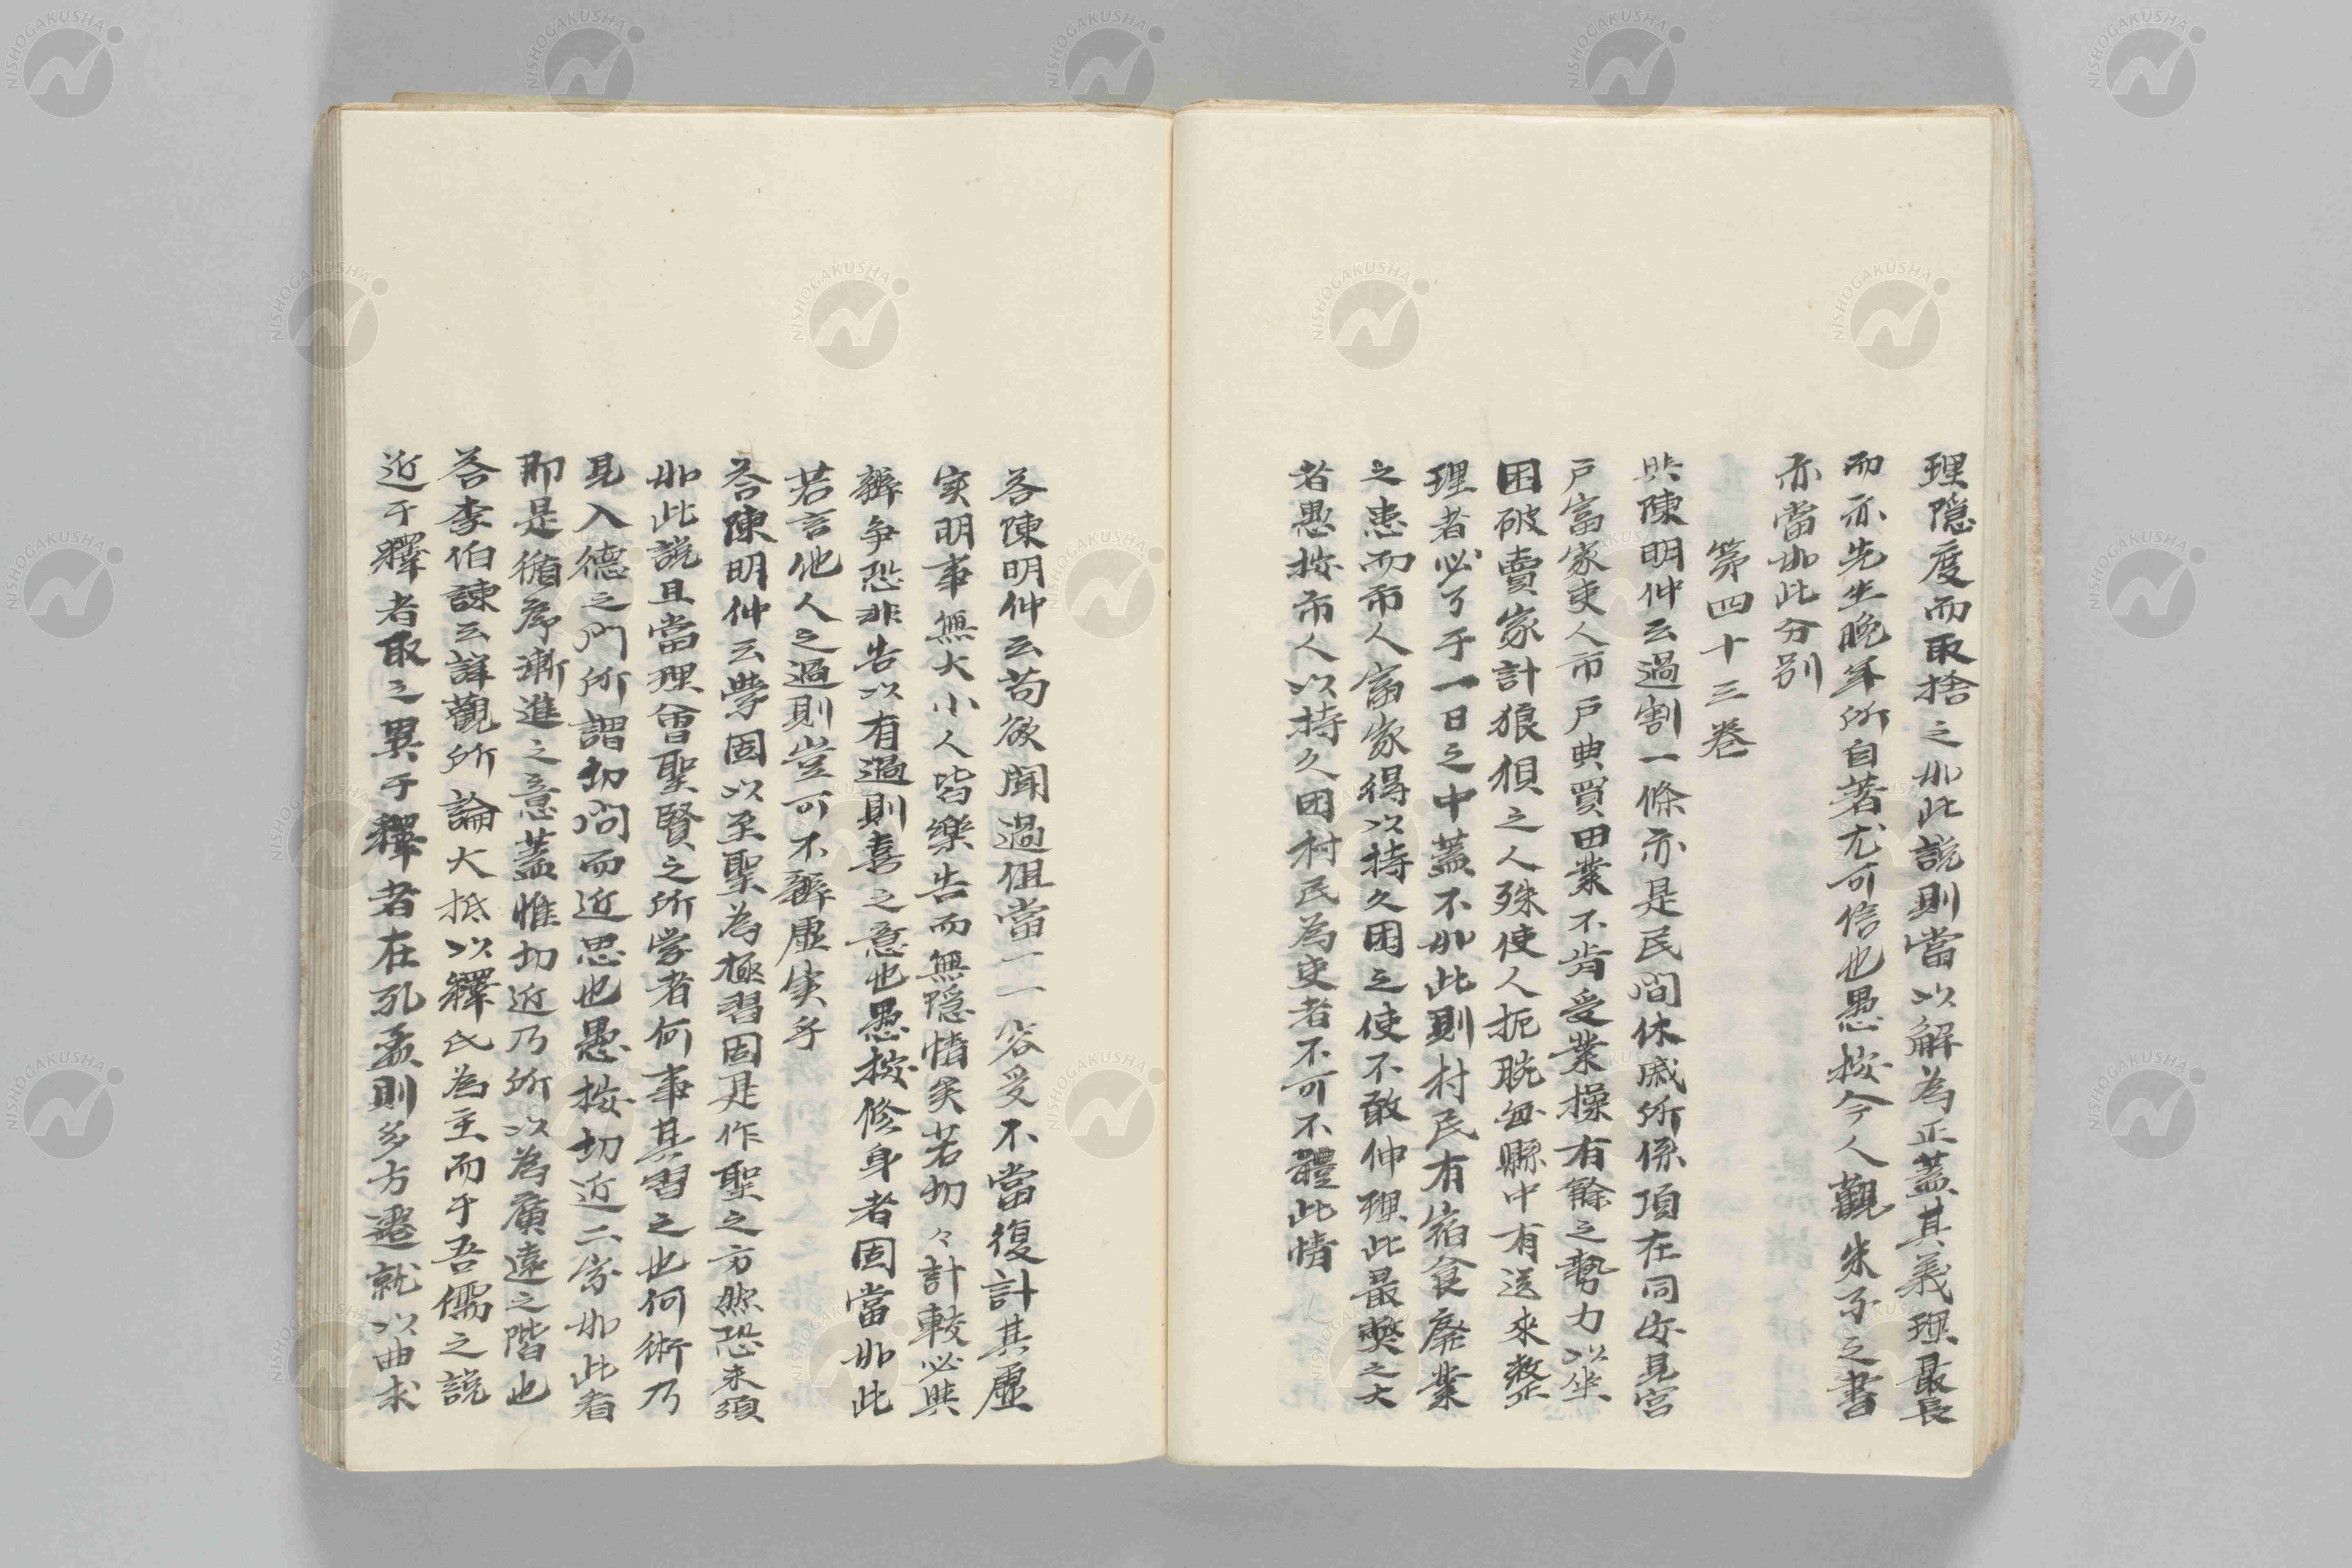 理隱度而取捨之如此説則當以解為正蓋其義理最長
而亦先生晚年所自著尤可信也愚按今人觀朱子之書
亦當如此分别
第四十三卷
與陳明仲云過割一條亦是民間休戚所係頃在同安見官
戶富家吏人市戶典買田業不肯受業操有餘之勢力以坐
困破賣家計狼狽之人殊使人扼腕每縣中有送來整
理者必了于一日之中蓋不如此則村民有宿食廢業
之患而市人富家得以持久困之使不敢伸理此最弊之大
者愚按市人以持久困村民為吏者不可不體此情
答陳明仲云苟欲聞過但當一一容受不當復計其虛
実明事無大小人皆樂告而無隱情矣若切々計較必與
辨争恐非告以有過則喜之意也愚按修身者固當如此
若言他人之過則豈可不辨虛実乎
答陳明仲云學固以至聖為極習固是作聖之方然恐未須
如此説且當理會聖賢之所学者何事其習之也何術乃
見入德之門所謂切問而近思也愚按切近二字如此看
即是循序漸進之意蓋惟切近乃所以為廣遠之階也
答李伯諫云詳觀所論大抵以釋氏為主而于吾儒之説
近于釋者取之異于釋者在孔孟則多方遷就以曲求
NISHOGAKUSHA